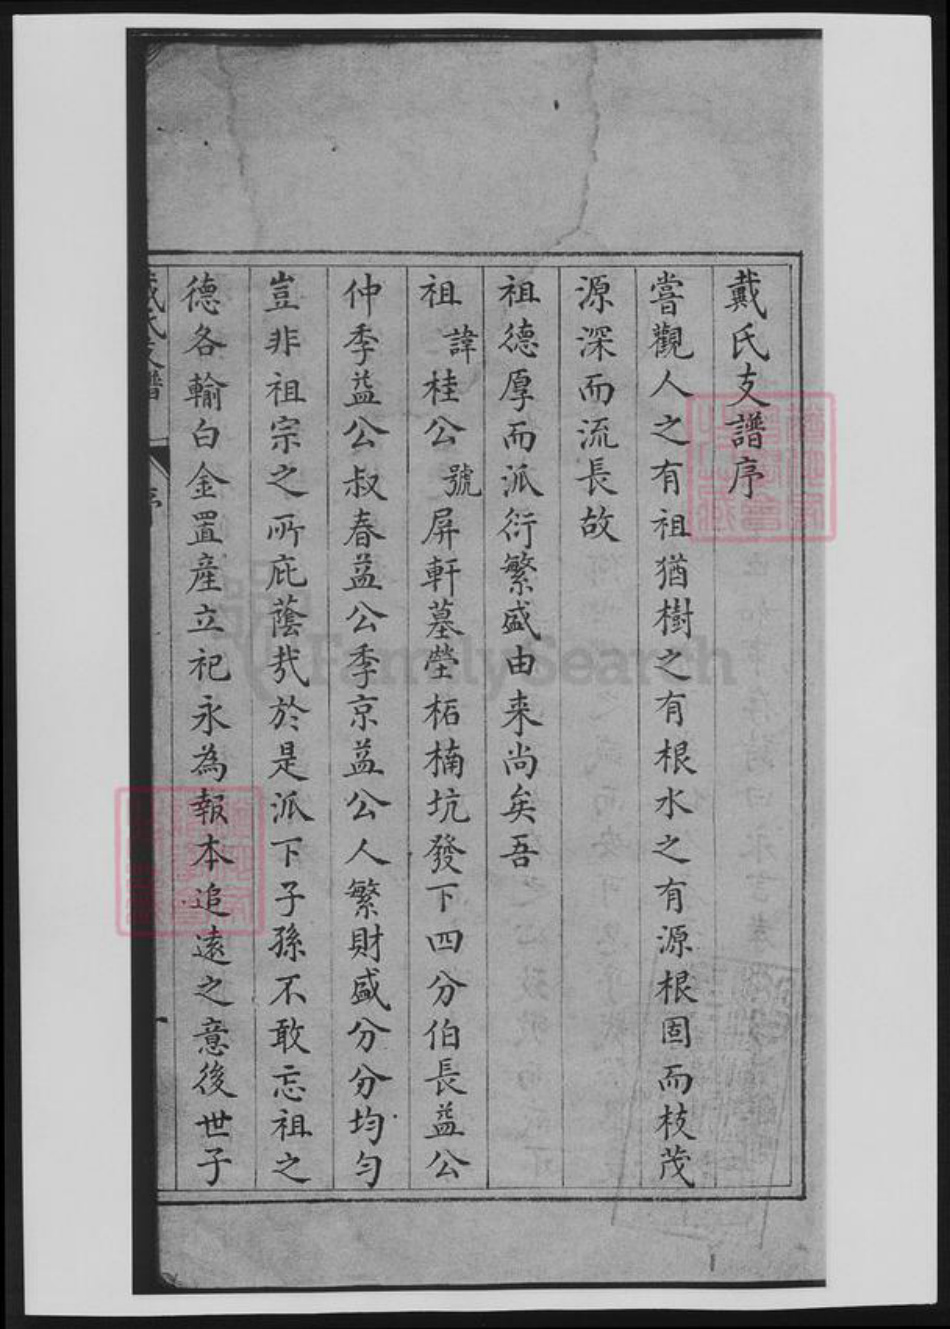 戴氏支譜序
嘗觀人之有祖猶樹之有根水之有源根固而枝茂
源深而流長故
祖德厚而派衍繁盛由来尚矣吾
祖諱桂公號屏軒墓塋柘楠坑發下四分伯長益公
仲季益公叔春益公季京益公人繁財盛分分均勻
豈非祖宗之所庇蔭㢤於是派下子孫不敢忘祖之
德各輸白金置産立祀永為報本追遠之意後世子
戴氏支譜 序
FamilySearch